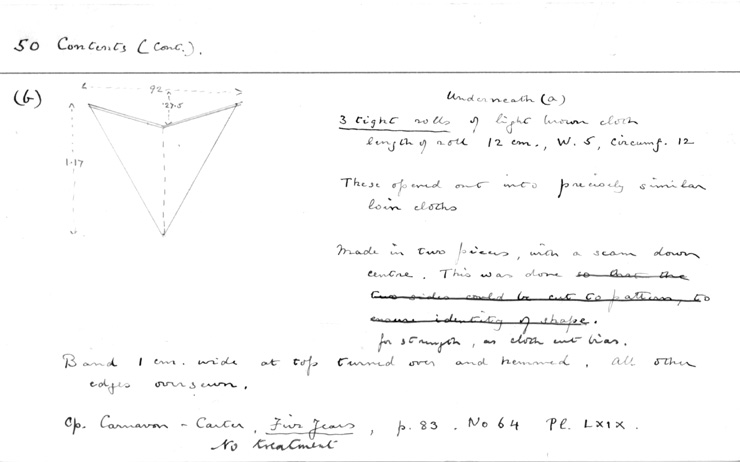 50 Contents (Cont.).
(b)
92
27.5
1.17
Underneath (a)
3 tight rolls of light brown cloth
length of roll 12 cm., W. 5, Circumf. 12
These opened out into precisely similar
loin cloths
Made in two pieces, with a seam down
centre. This was done so that the
two sides could be cut to pattern, to
ensure identity of shape.
for strength, as cloth cut bias.
Band 1 cm. wide at top turned over and hemmed. All other
edges oversewn.
Cp. Carnarvon - Carter, Five Years, p. 83. No 64 Pl. LXIX.
No treatment